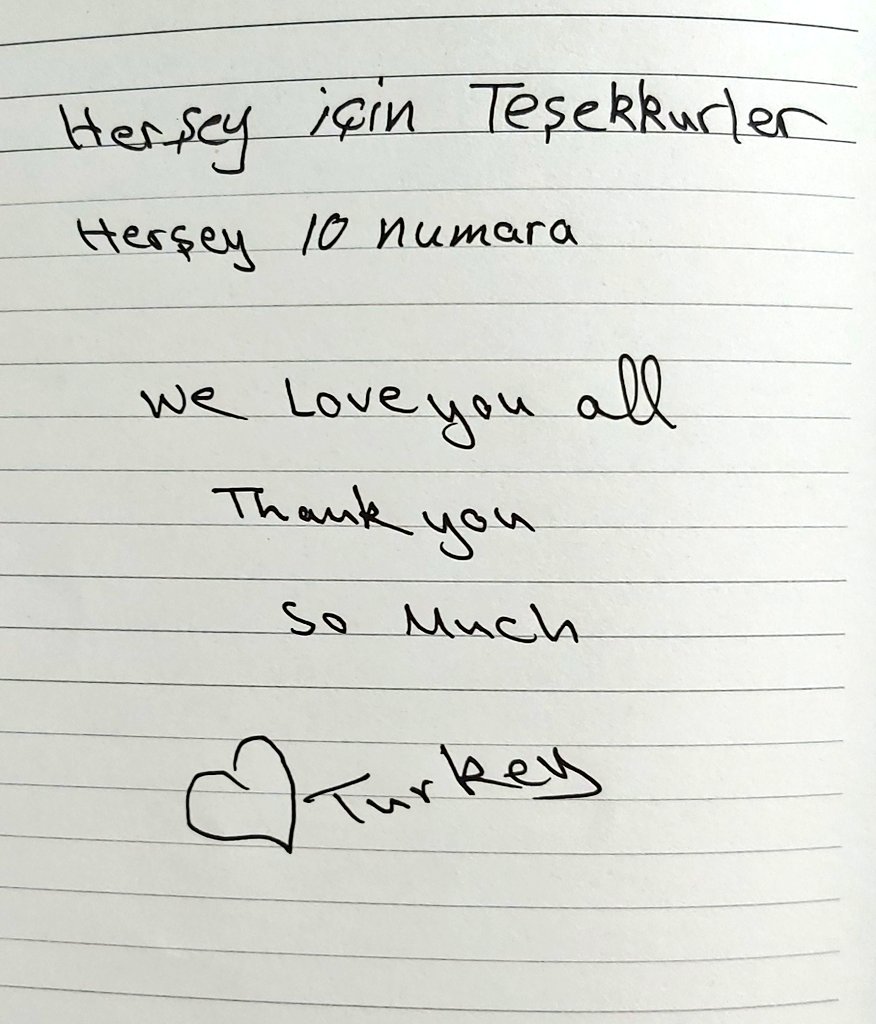 Herşey için Teşekkurler
Herşey 10 numara
We Love you all
Thank you
So Much
Turkey